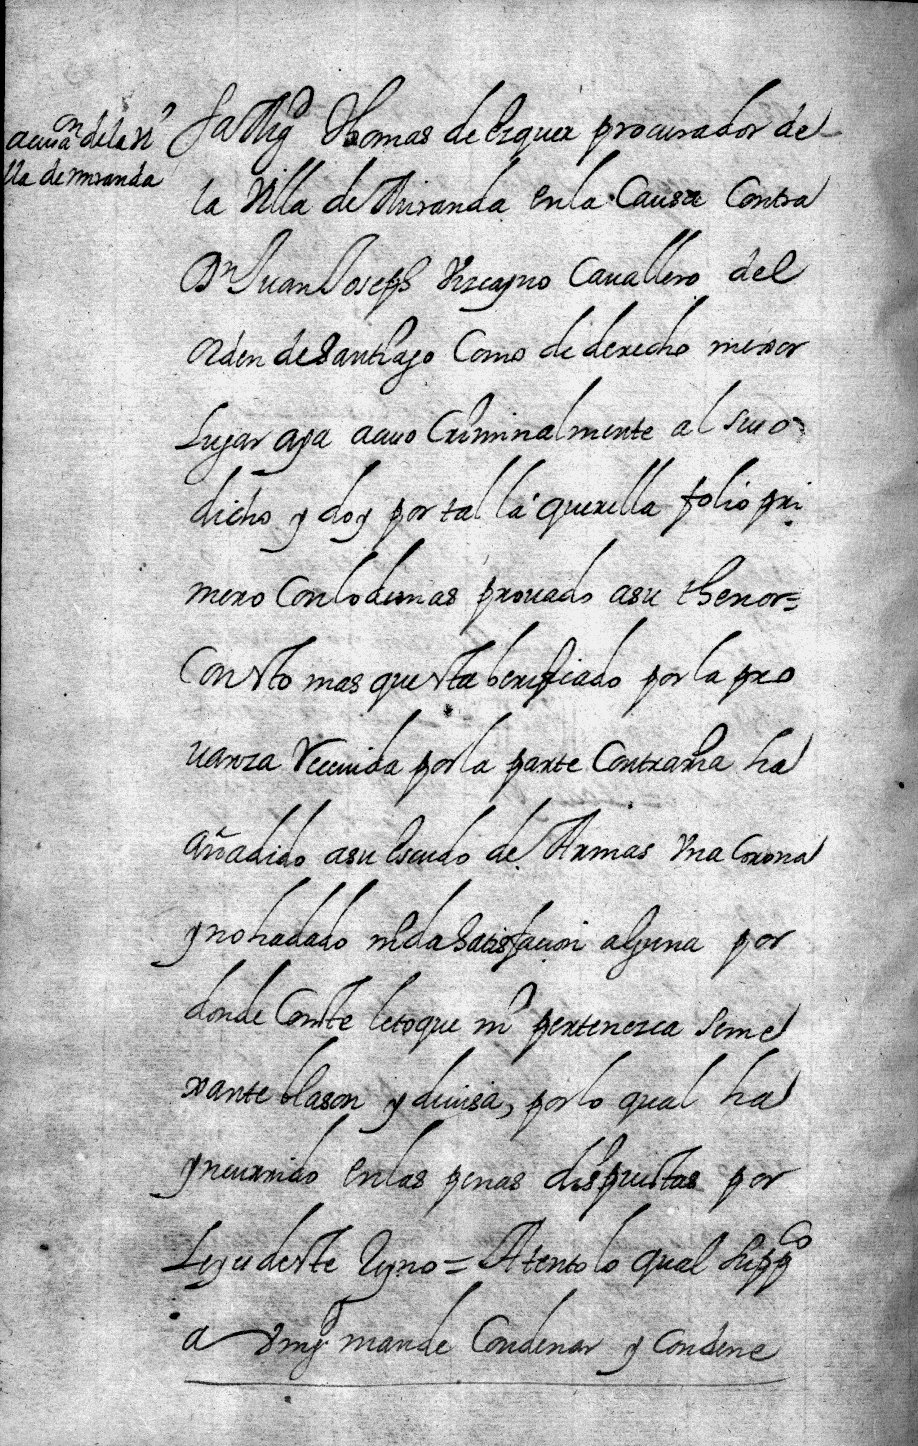 acuu.on de la Vi
lla de miranda
Sa Mag.d Thomas de Ezquer procurador de
la Villa de Miranda en la Causa Contra
Dn Juan Joseph Vizcayno Cauallero del
orden de Santiago Como de derecho mexor
Lugar aya acuso Criminalmente al suso
dicho y doy por tal la querella folio pri
mero Con lo demas prouado a su thenor =
Con esto mas que esta berificado por la pro
uanza Reciuida por la parte Contraria ha
añadido a su escudo de Armas Vna Corona
y no ha dado ni da Satisfacion alguna por
donde Conste le toque ni pertenezca seme
xante blason y diuisa, por lo qual ha
yncurrido en las penas dispuestas por
Leyes deste Reyno = Atento lo qual supp.co
a Vmg.d mande Condenar y Condene